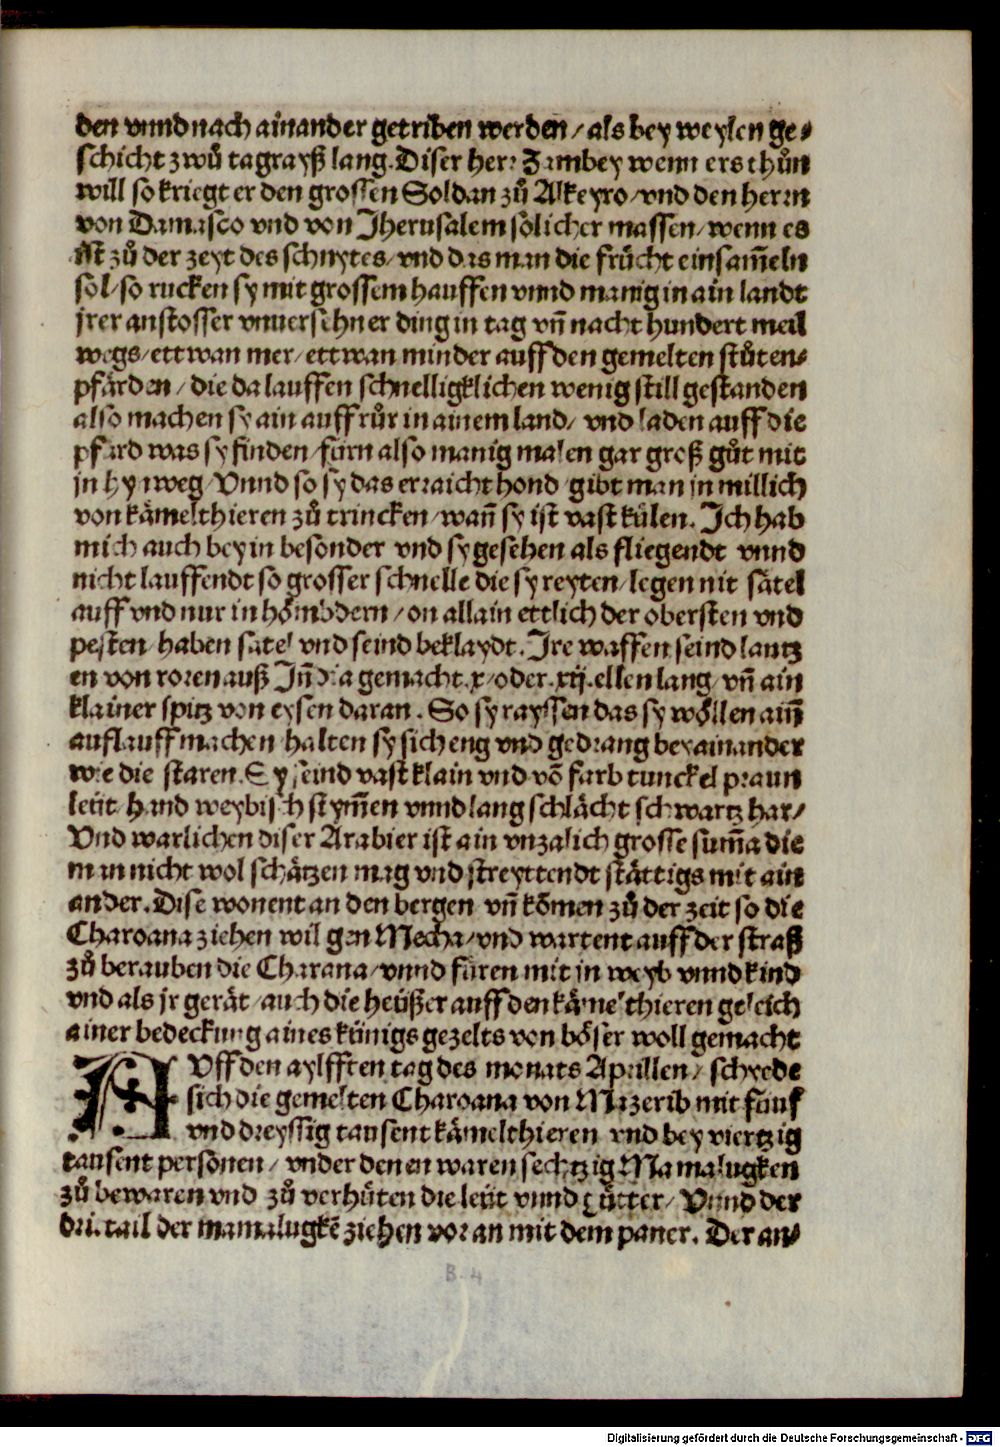 den vnnd nach ainander getriben werden / als bey weylen ge⸗
schicht zwů tagrayß lang. Diser herr Zambey wenn ers thůn
will so kriegt er den grossen Soldan zů Alkeyro / vnd den herrn
von Damasco vnd von Jherusalem sölicher massen / wenn es
ist zů der zeyt des schnytes / vnd das man die frücht einsam̃eln
sol / so rucken sy mit grossem hauffen vnnd manig in ain landt
jrer anstosser vnuersehner ding in tag vn̄ nacht hundert meil
wegs / ettwan mer / ettwan minder auff den gemelten stůten⸗
pfärden / die da lauffen schnelligklichen wenig still gestanden
also machen sy ain auffrůr in ainem land / vnd laden auff die
pfård was sy finden / fürn also manig malen gar groß gůt mit
jn hynweg / Vnnd so sy das erraicht hond / gibt man jn millich
von kämelthieren zů trincken / wan̄ sy ist vast külen. Ich hab
mich auch bey in besonder vnd sy gesehen als fliegendt vnnd
nicht lauffendt so grosser schnelle die sy reyten / legen nit sätel
auff vnd nur in hömbdern / on allain ettlich der obersten vnd
pesten / haben sätel vnd seind beklaydt. Ire waffen seind lantz
en von roren auß In̄dia gemacht .x / oder .xij. ellen lang / vn̄ ain
klainer spitz von eysen daran. So sy rayssen das sy wöllen ain̄
auflauff machen / halten sy sich eng vnd gedrang beyainander
wie die staren. Sy seind vast klain vnd vō farb tunckel praun
leüt / hand weybisch stym̄en vnnd lang schlächt schwartz har /
Vnd warlichen diser Arabier ist ain vnzalich grosse sum̄a die
man nicht wol schätzen mag vnd streyttendt stättigs mit ain
ander. Dise wonent an den bergen vn̄ kōmen zů der zeit so die
Charoana ziehen wil gen Mecha / vnd wartent auff der straß
zů berauben die Charana / vnnd füren mit in weyb vnnd kind
vnd als jr gerät / auch die heüßer auff den kämelthieren geleich
ainer bedeckung aines künigs gezelts von böser woll gemacht
AVff den aylfften tag des monats Aprillen / schyede
sich die gemelten Charoana von Mazerib mit fünf
vnd dreyssig tausent kämelthieren vnd bey viertzig
tausent personen / vnder denen waren sechtzig Mamalugken
zů bewaren vnd zů verhüten die leüt vnnd gütter / Vnnd der
drittail der mamalugkē ziehen voran mit dem paner. Der an⸗
B. 4
Digitalisierung gefördert durch die Deutsche Forschungsgemeinschaft - DFG